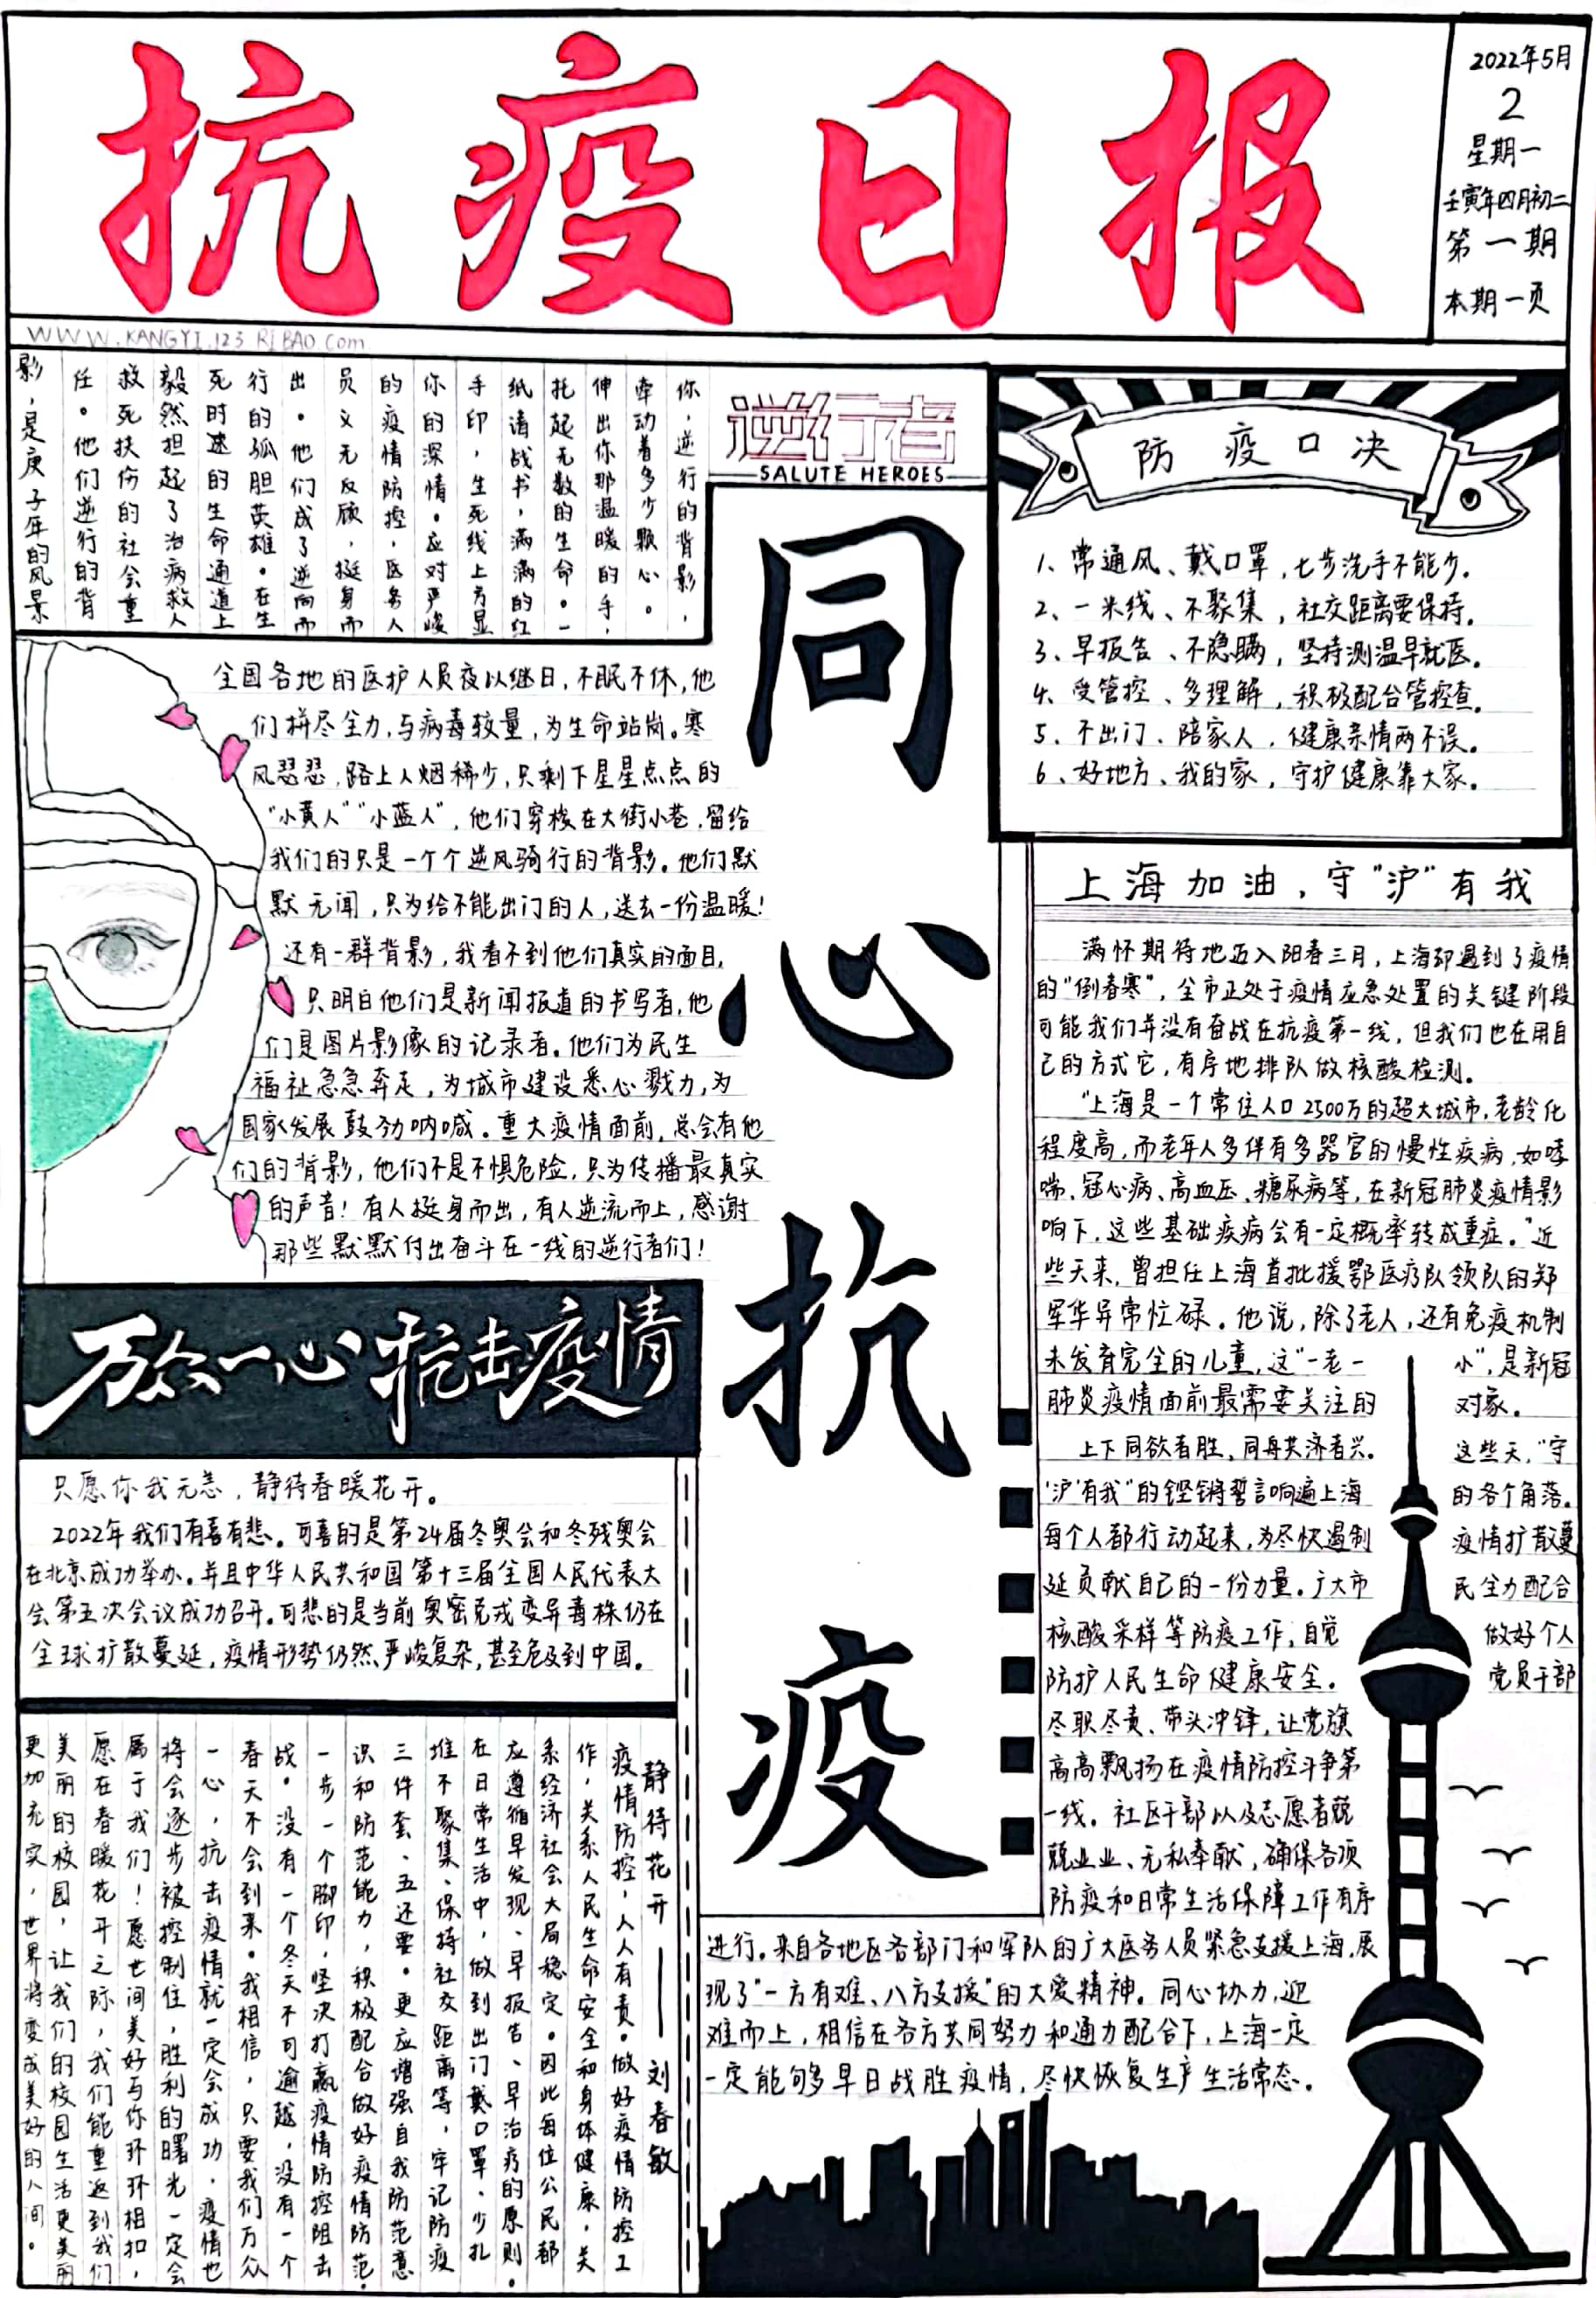 抗疫日报
2022年5月
2
星期一
壬寅年四月初二
第一期
本期一页
WWW.KANGYI.123 RIBAO.com
逆行者
SALUTE HEROES
你，逆行的背影，
牵动着多少颗心。
伸出你那温暖的手，
托起无数的生命。一
纸请战书，满满的红
手印，生死线上方显
你的深情。应对严峻
的疫情防控，医务人
员义无反顾，挺身而
出。他们成了逆向而
行的孤胆英雄。在生
死时速的生命通道上
毅然担起了治病救人
救死扶伤的社会重
任。他们逆行的背
影，是庚子年的风景
全国各地的医护人员夜以继日，不眠不休，他
们拼尽全力，与病毒较量，为生命站岗。寒
风瑟瑟，路上人烟稀少，只剩下星星点点的
“小黄人”“小蓝人”，他们穿梭在大街小巷，留给
我们的只是一个个逆风骑行的背影。他们默
默无闻，只为给不能出门的人，送去一份温暖！
还有一群背影，我看不到他们真实的面目，
只明白他们是新闻报道的书写者，他
们是图片影像的记录者。他们为民生
福祉急急奔走，为城市建设悉心戮力，为
国家发展鼓劲呐喊。重大疫情面前，总会有他
们的背影，他们不是不惧危险，只为传播最真实
的声音！有人挺身而出，有人逆流而上，感谢
那些默默付出奋斗在一线的逆行者们！
同心抗疫
防疫口决
1、常通风、戴口罩，七步洗手不能少。
2、一米线、不聚集，社交距离要保持。
3、早报告、不隐瞒，坚持测温早就医。
4、受管控、多理解，积极配合管控查。
5、不出门、陪家人，健康亲情两不误。
6、好地方、我的家，守护健康靠大家。
上海加油，守“沪”有我
满怀期待地迈入阳春三月，上海却遇到了疫情
的“倒春寒”，全市正处于疫情应急处置的关键阶段
可能我们并没有奋战在抗疫第一线，但我们也在用自
己的方式它，有序地排队做核酸检测。
“上海是一个常住人口2500万的超大城市，老龄化
程度高，而老年人多伴有多器官的慢性疾病，如哮
喘、冠心病、高血压、糖尿病等，在新冠肺炎疫情影
响下，这些基础疾病会有一定概率转成重症。”近
些天来，曾担任上海首批援鄂医疗队领队的郑
军华异常忙碌。他说，除了老人，还有免疫机制
未发育完全的儿童，这“一老一小”，是新冠
肺炎疫情面前最需要关注的对象。
上下同欲者胜，同舟共济者兴。这些天，“守
‘沪’有我”的铿锵誓言响遍上海的各个角落。
每个人都行动起来，为尽快遏制疫情扩散蔓
延贡献自己的一份力量。广大市民全力配合
核酸采样等防疫工作，自觉做好个人
防护人民生命健康安全。党员干部
尽职尽责、带头冲锋，让党旗
高高飘扬在疫情防控斗争第
一线。社区干部以及志愿者兢
兢业业、无私奉献，确保各项
防疫和日常生活保障工作有序
进行。来自各地区各部门和军队的广大医务人员紧急支援上海，展
现了“一方有难、八方支援”的大爱精神。同心协力，迎
难而上，相信在各方共同努力和通力配合下，上海一定
一定能够早日战胜疫情，尽快恢复生产生活常态。
万众一心 抗击疫情
只愿你我无恙，静待春暖花开。
2022年我们有喜有悲。可喜的是第24届冬奥会和冬残奥会
在北京成功举办。并且中华人民共和国第十三届全国人民代表大
会第五次会议成功召开。可悲的是当前奥密克戎变异毒株仍在
全球扩散蔓延，疫情形势仍然严峻复杂，甚至危及到中国。
静待花开——刘春敏
疫情防控，人人有责。做好疫情防控工
作，关系人民生命安全和身体健康，关
系经济社会大局稳定。因此每位公民都
应遵循早发现、早报告、早治疗的原则。
在日常生活中，做到出门戴口罩、少扎
堆不聚集、保持社交距离等，牢记防疫
三件套、五还要。更应增强自我防范意
识和防范能力，积极配合做好疫情防范。
一步一个脚印，坚决打赢疫情防控阻击
战。没有一个冬天不可逾越，没有一个
春天不会到来。我相信，只要我们万众
一心，抗击疫情就一定会成功，疫情也
将会逐步被控制住，胜利的曙光一定会
属于我们！愿世间美好与你环环相扣，
愿在春暖花开之际，我们能重返到我们
美丽的校园，让我们的校园生活更美丽
更加充实，世界将变成美好的人间。